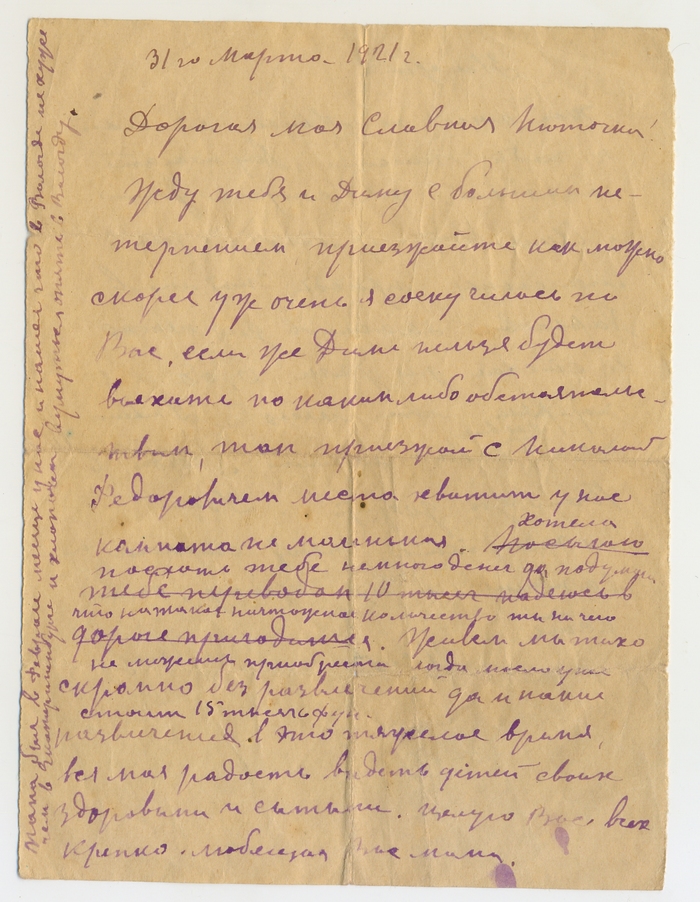 31го Марта 1921 г.
Дорогая моя Славная Нюточка!
Жду тебя и Диму с большим не-
терпением приезжайте как можно
скорее уж очень я соскучилась по
Вас, если же Диме нельзя будет
выехать по каким либо обстоятельс-
твам, так приезжай с Николай
Федоровичем места хватит у нас
комната не маленькая. Посылаю
хотела
послать тебе немного денег да подумала
тебе переводом 10 тысяч надеюсь в
что на такое ничтожное количество ты ничего
дороге пригодится. Живем мы тихо
не можешь приобрести когда масло у нас
скромно без развлечений да и какие
стоит 15 тысяч фун.
развлечения в это тяжелое время,
вся моя радость видеть детей своих
здоровыми и сытыми. Целую Вас всех
крепко. любящая Вас мама.
папа был в феврале месяце у нас и нашел что в Вологде не хуже
чем в Екатеринбурге и хлопочет в Вологду.